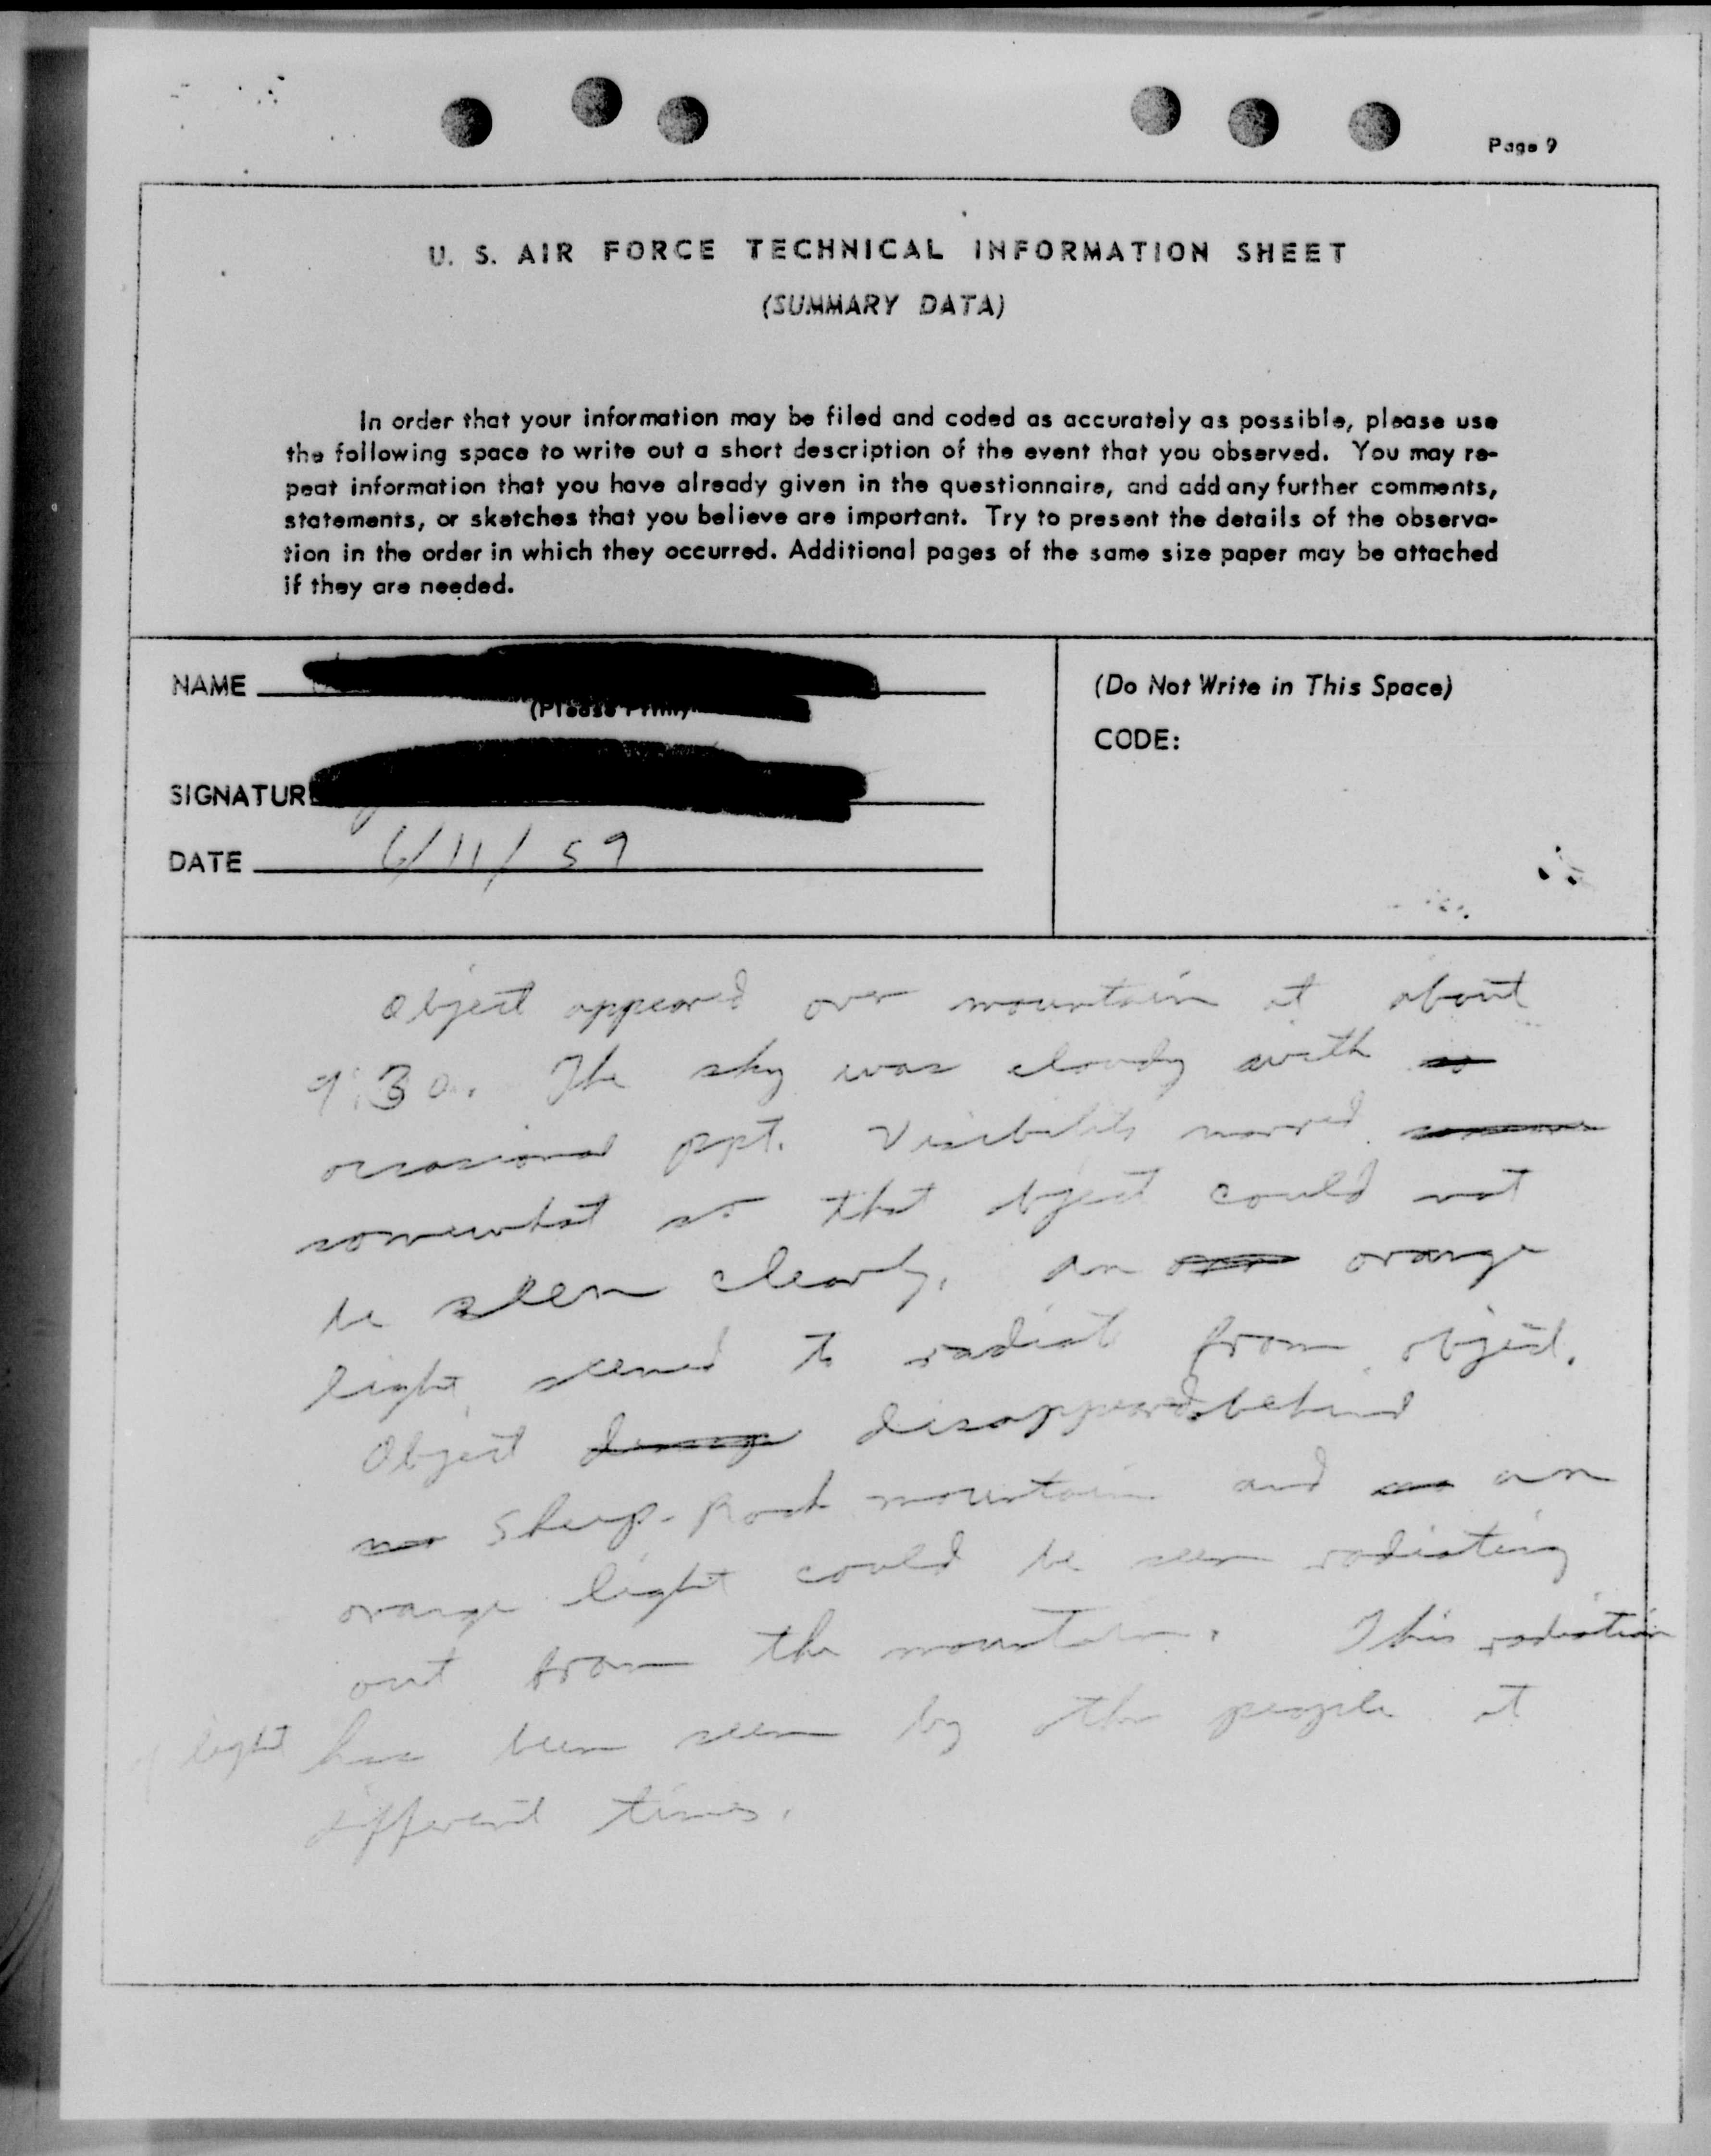 Page 9
U. S. AIR FORCE TECHNICAL INFORMATION SHEET
(SUMMARY DATA)
In order that your information may be filed and coded as accurately as possible, please use
the following space to write out a short description of the event that you observed. You may re-
peat information that you have already given in the questionnaire, and add any further comments,
statements, or sketches that you believe are important. Try to present the details of the observa-
tion in the order in which they occurred. Additional pages of the same size paper may be attached
if they are needed.
NAME
(Please Print)
SIGNATUR
DATE 6/11/59
(Do Not Write in This Space)
CODE:
Object appeared over mountain at about
9:30. The sky was cloudy with
occasional ppt. Visibility marred
somewhat so that object could not
be seen clearly. An orange
light seemed to radiate from object.
Object disappeared behind
Sheep-Rock mountain and an
orange light could be seen radiating
out from the mountain. This radiation
of light has been seen by other people at
different times.